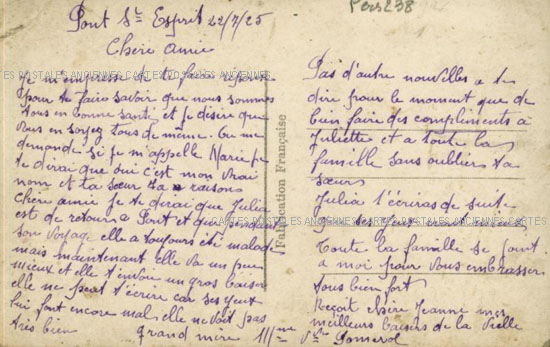 Pers 238
Pont St Esprit 22/7/25
Chère amie
Je m'empresse de te faire
pour te faire savoir que nous sommes
tous en bonne santé et je désire que
vous en soyez tous de même. Tu me
demande si je m'appelle Marie je
te dirai que oui c'est mon vrai
nom et ta sœur a raisons
Chère amie je te dirai que Julia
est de retour a Pont et que pendant
son voyage elle a toujours été malade
mais maintenant elle va un peu
mieux et elle t'envoie un gros baiser
elle ne peut t'écrire car ses yeux
lui font encore mal elle ne voit pas
très bien
Pas d'autre nouvelles a te
dire pour le moment que de
bien faire des compliments à
Juliette et a toute la
famille sans oublier ta
sœur
Julia t'écriras de suite
Toute la famille se joint
a moi pour vous embrasser
tous bien fort
Reçoit chère Jeanne mes
meilleurs baisers de la vielle
grand mère Mme Vve Pomerol
Fabrication Française
CARTES POSTALES ANCIENNES CARTES POSTALES ANCIENNES CARTES